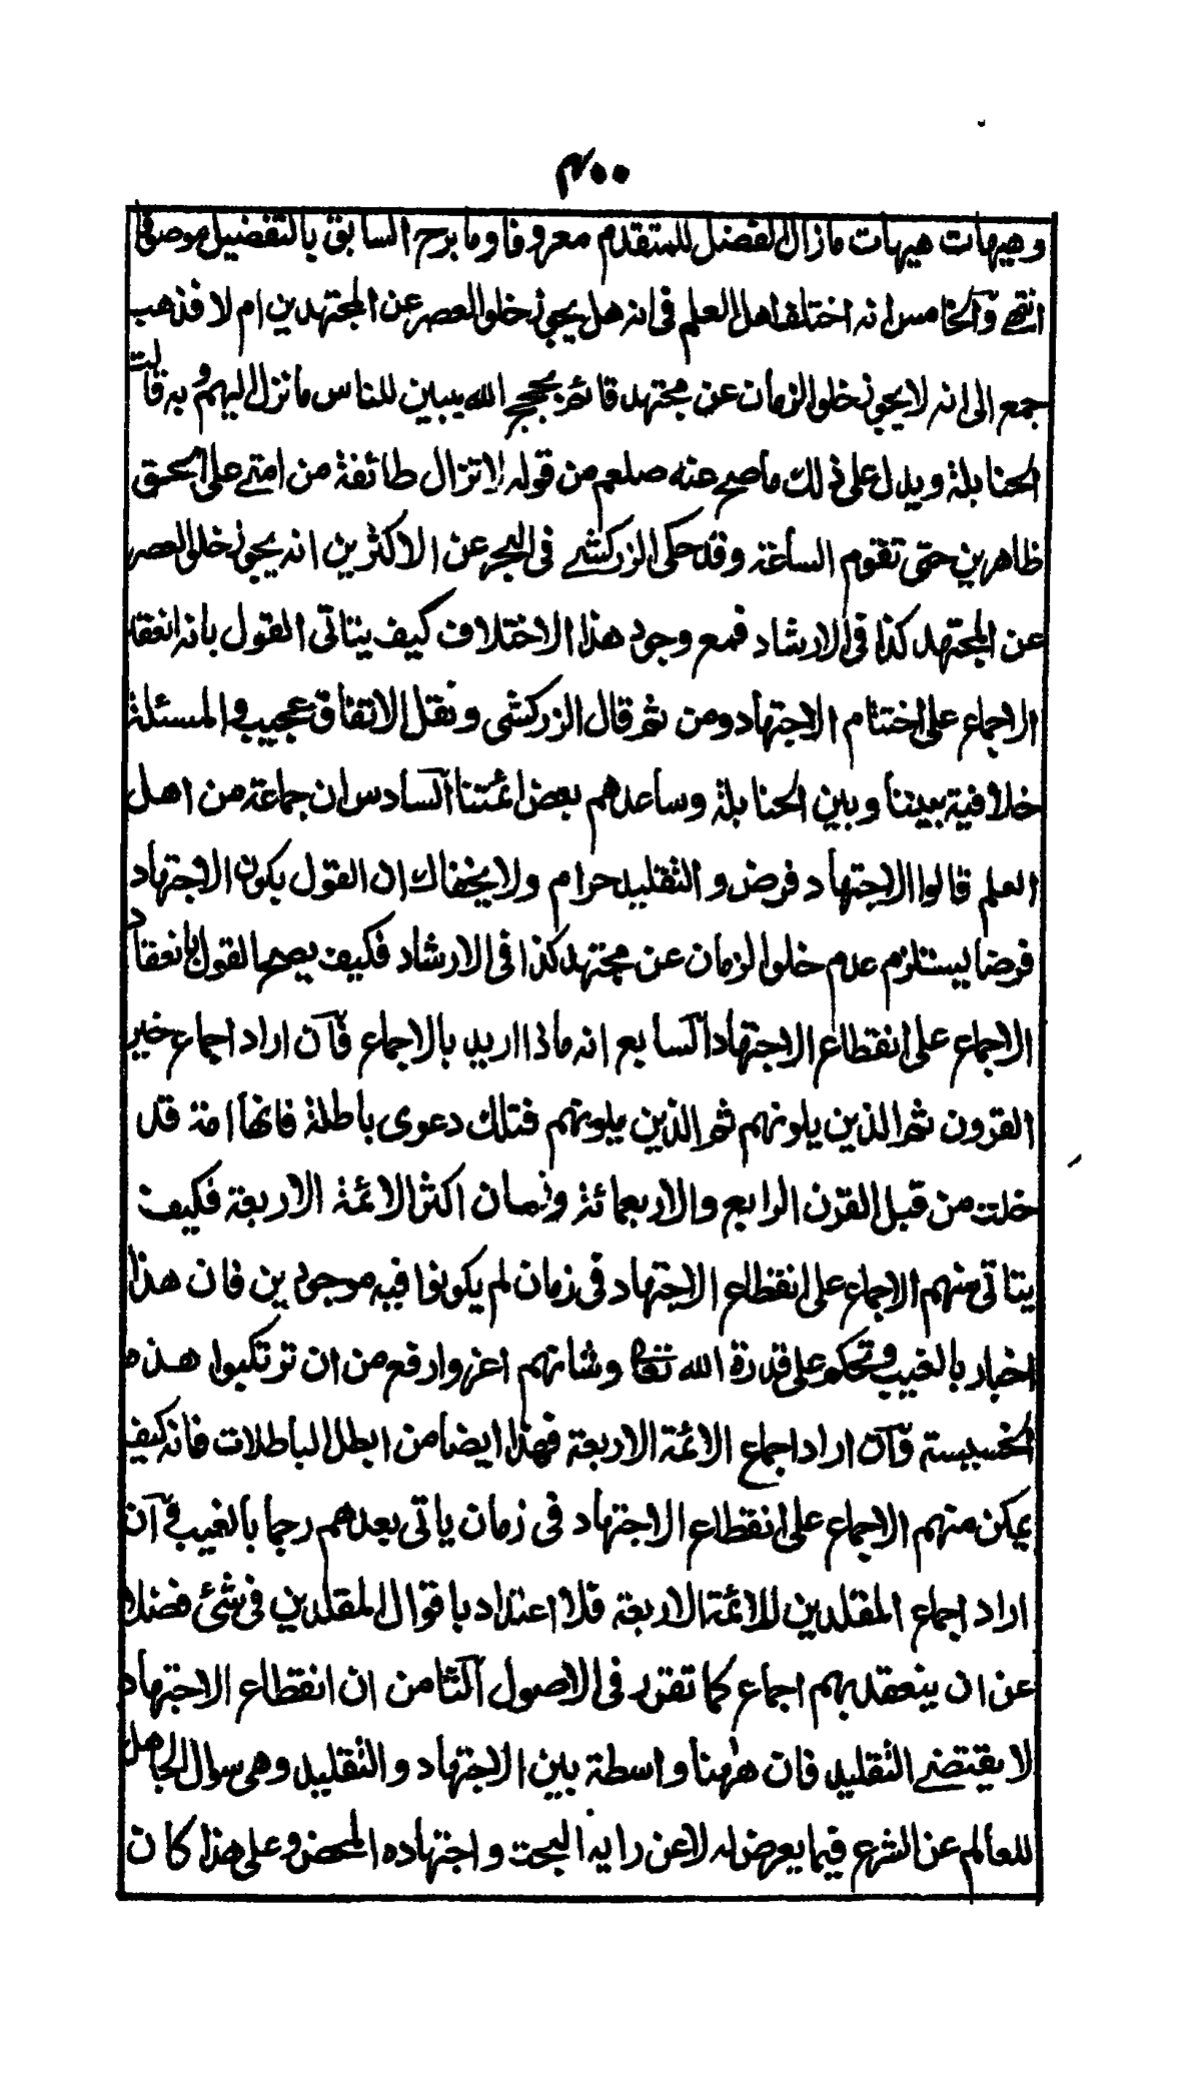 ۴۰۰
وهيهات هيهات مازال الفضل للمتقدم معروفا وما برح السابق بالتفضيل موصوفا
انتهى والخامس انه اختلف اهل العلم فى انه هل يجوز خلو العصر عن المجتهدين ام لا فذهب
جمع الى انه لا يجوز خلو الزمان عن مجتهد قائم بحجج الله يبين للناس ما نزل اليهم وبه قالت
الحنابلة ويدل على ذلك ما صح عنه صلعم من قوله لا تزال طائفة من امتى على الحق
ظاهرين حتى تقوم الساعة وقد حكى الزركشى فى البحر عن الاكثرين انه يجوز خلو العصر
عن المجتهد كذا فى الارشاد فمع وجود هذا الاختلاف كيف يتاتى القول بانه انعقد
الاجماع على اختتام الاجتهاد ومن ثم قال الزركشى ونقل الاتفاق عجيب والمسئلة
خلافية بيننا وبين الحنابلة وساعدهم بعض ائمتنا السادس ان جماعة من اهل
العلم قالوا الاجتهاد فرض والتقليد حرام ولا يخفاك ان القول بكون الاجتهاد
فرضا يستلزم عدم خلو الزمان عن مجتهد كذا فى الارشاد فكيف يصح القول بانعقاد
الاجماع على انقطاع الاجتهاد السابع انه ماذا اريد بالاجماع فان اراد اجماع خير
القرون ثم الذين يلونهم ثم الذين يلونهم فتلك دعوى باطلة فانها امة قد
خلت من قبل القرن الرابع والاربعمائة وزمان اكثر الائمة الاربعة فكيف
يتاتى منهم الاجماع على انقطاع الاجتهاد فى زمان لم يكونوا فيه موجودين فان هذا
اخبار بالغيب وتحكم على قدرة الله تعالى وشانهم اعز وارفع من ان ترتكبوا هذه
الخسيسة وان اراد اجماع الائمة الاربعة فهذا ايضا من ابطل الباطلات فانه كيف
يمكن منهم الاجماع على انقطاع الاجتهاد فى زمان ياتى بعدهم رجما بالغيب وان
اراد اجماع المقلدين للائمة الاربعة فلا اعتداد باقوال المقلدين فى شئ فضلا
عن ان ينعقد بهم اجماع كما تقرر فى الاصول الثامن ان انقطاع الاجتهاد
لا يقتضى التقليد فان ههنا واسطة بين الاجتهاد والتقليد وهى سوال الجاهل
للعالم عن الشرع فيما يعرض له لا عن رايه البحت واجتهاده المحض وعلى هذا كان